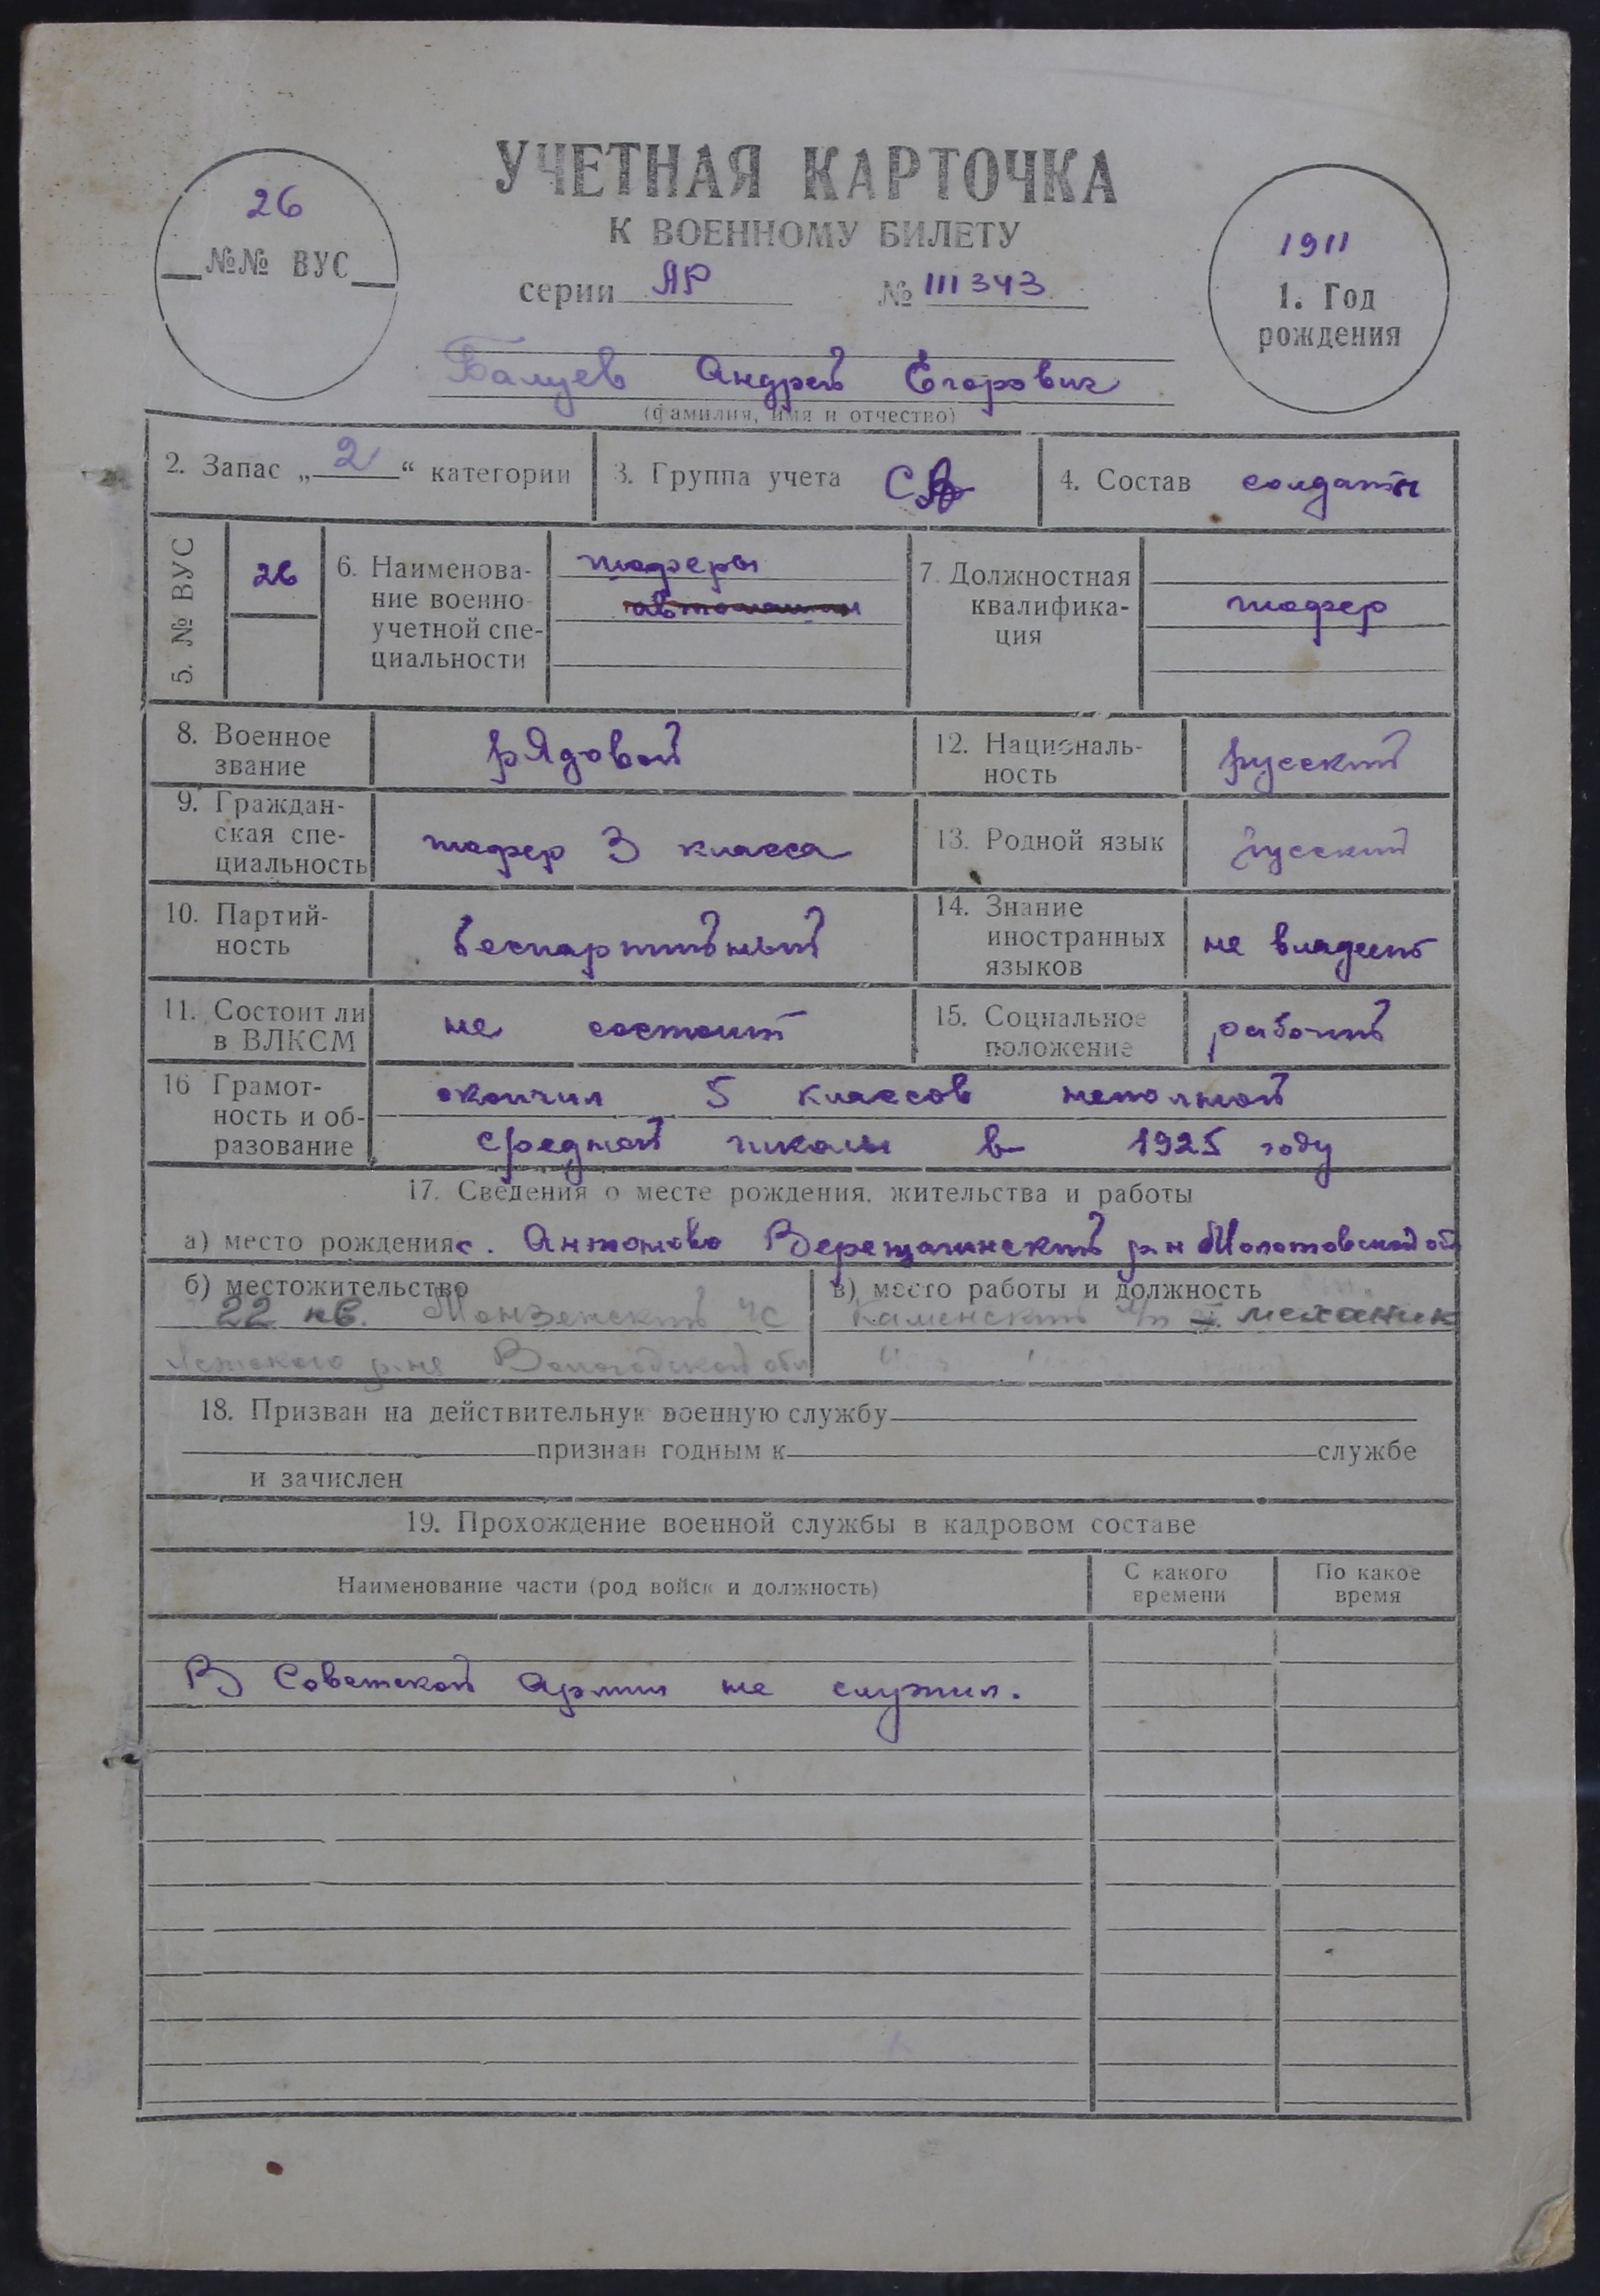 УЧЕТНАЯ КАРТОЧКА
К ВОЕННОМУ БИЛЕТУ
26
№№ ВУС
серии ЯР № 111343
1911
1. Год
рождения
Балуев Андрей Егорович
(фамилия, имя и отчество)
2. Запас „2“ категории
3. Группа учета СА
4. Состав солдаты
5. № ВУС
26
6. Наименова-
ние военно-
учетной спе-
циальности
шоферы
7. Должностная
квалифика-
ция
шофер
8. Военное
звание
рядовой
12. Националь-
ность
русский
9. Граждан-
ская спе-
циальность
шофер 3 класса
13. Родной язык
русский
10. Партий-
ность
беспартийный
14. Знание
иностранных
языков
не владеет
11. Состоит ли
в ВЛКСМ
не состоит
15. Социальное
положение
рабочий
16 Грамот-
ность и об-
разование
окончил 5 классов неполной
средней школы в 1925 году
17. Сведения о месте рождения, жительства и работы
а) место рождения с. Антоново Верещагинский р-н Молотовской об
б) местожительство
22 кв. Монзенский ЧС
Вологодской обл
в) место работы и должность
Каменский л/п механик
18. Призван на действительную военную службу
признан годным к службе
и зачислен
19. Прохождение военной службы в кадровом составе
Наименование части (род войск и должность)
С какого
времени
По какое
время
В Советской Армии не служил.